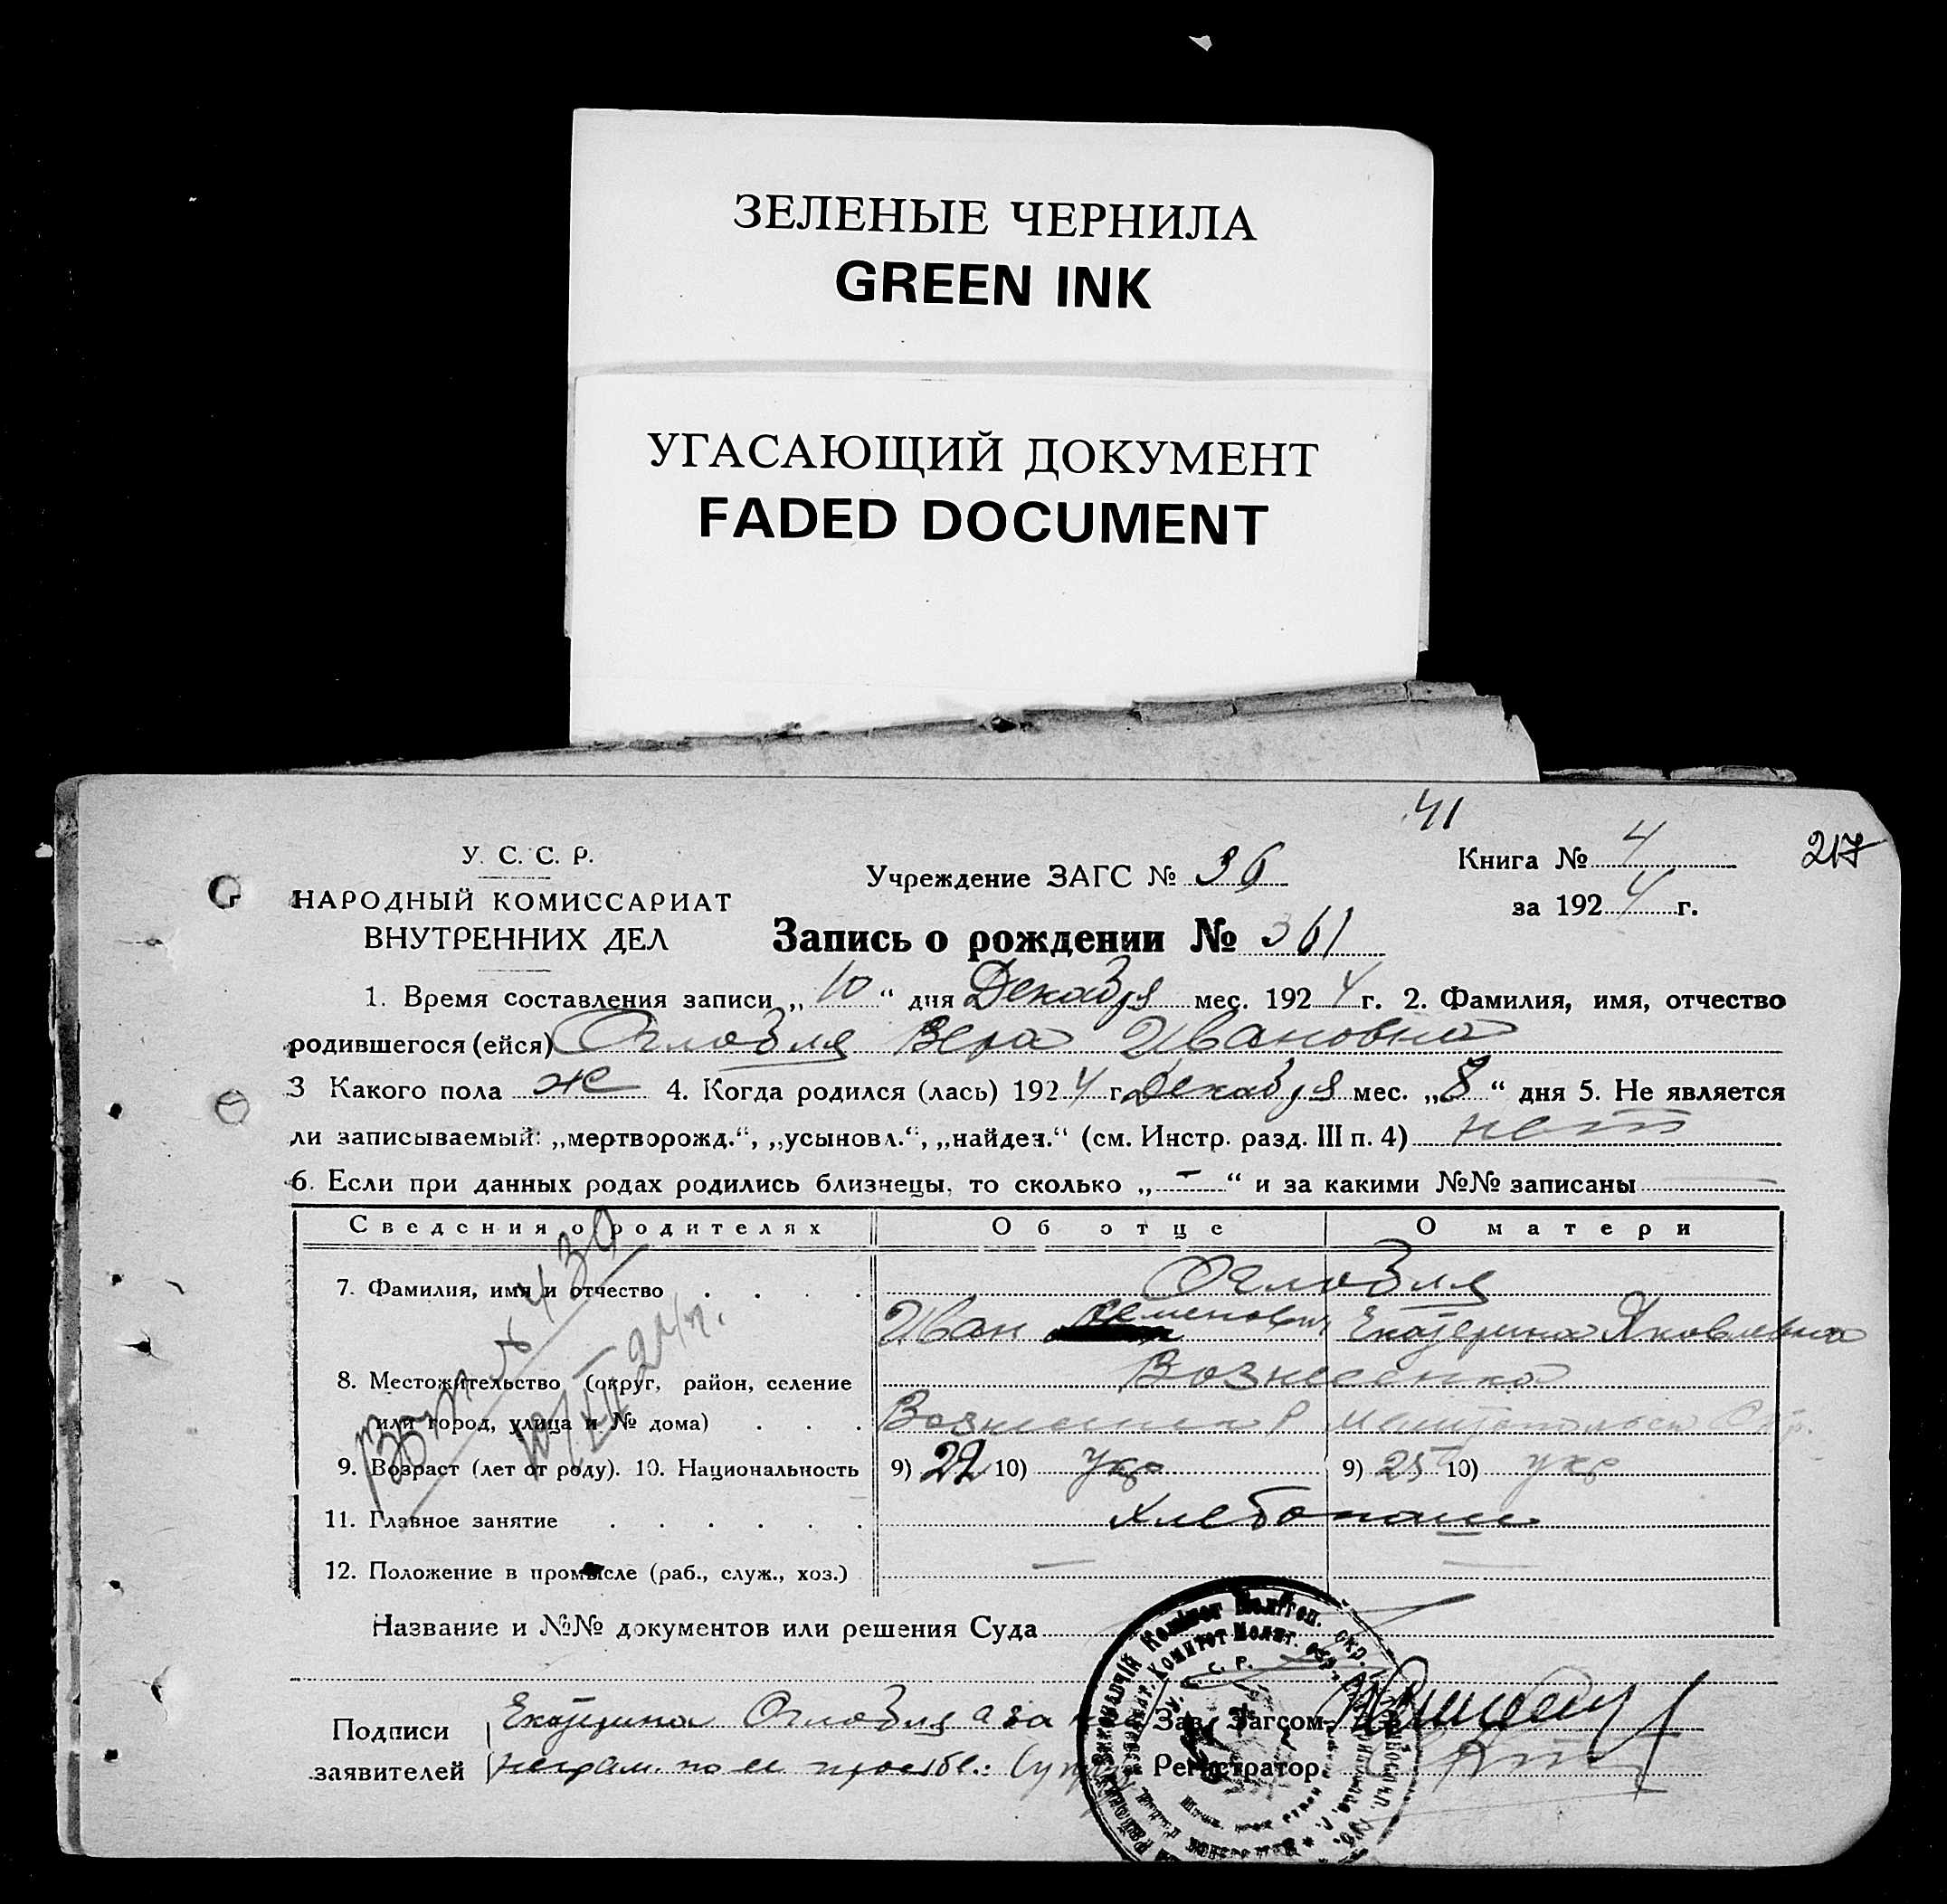 ЗЕЛЕНЫЕ ЧЕРНИЛА
GREEN INK
УГАСАЮЩИЙ ДОКУМЕНТ
FADED DOCUMENT
41
У. С. С. Р.
НАРОДНЫЙ КОМИССАРИАТ
ВНУТРЕННИХ ДЕЛ
Учреждение ЗАГС № 36
Книга № 4
217
за 1924 г.
Запись о рождении № 361
1. Время составления записи „10“ дня Декабря мес. 1924 г. 2. Фамилия, имя, отчество
родившегося (ейся) Вера Ивановна
3 Какого пола ж 4. Когда родился (лась) 1924 г. Декабря мес. „8“ дня 5. Не является
ли записываемый: „мертворожд.“, „усыновл.“, „найден.“ (см. Инстр. разд. III п. 4) нет
6. Если при данных родах родились близнецы, то сколько „-“ и за какими №№ записаны
Сведения о родителях Об отце О матери
7. Фамилия, имя и отчество
Иван Семенович Екатерина Яковлевна
8. Местожительство (округ, район, селение Вознесенка
или город, улица и № дома)
9. Возраст (лет от роду). 10. Национальность 9) 22 10) укр 9) 25 10) укр
11. Главное занятие Хлебопаш
12. Положение в промысле (раб., служ., хоз.) — —
Название и №№ документов или решения Суда
Подписи Екатерина а за
заявителей неграм. по ее просьбе:
Зав. Загсом
Регистратор